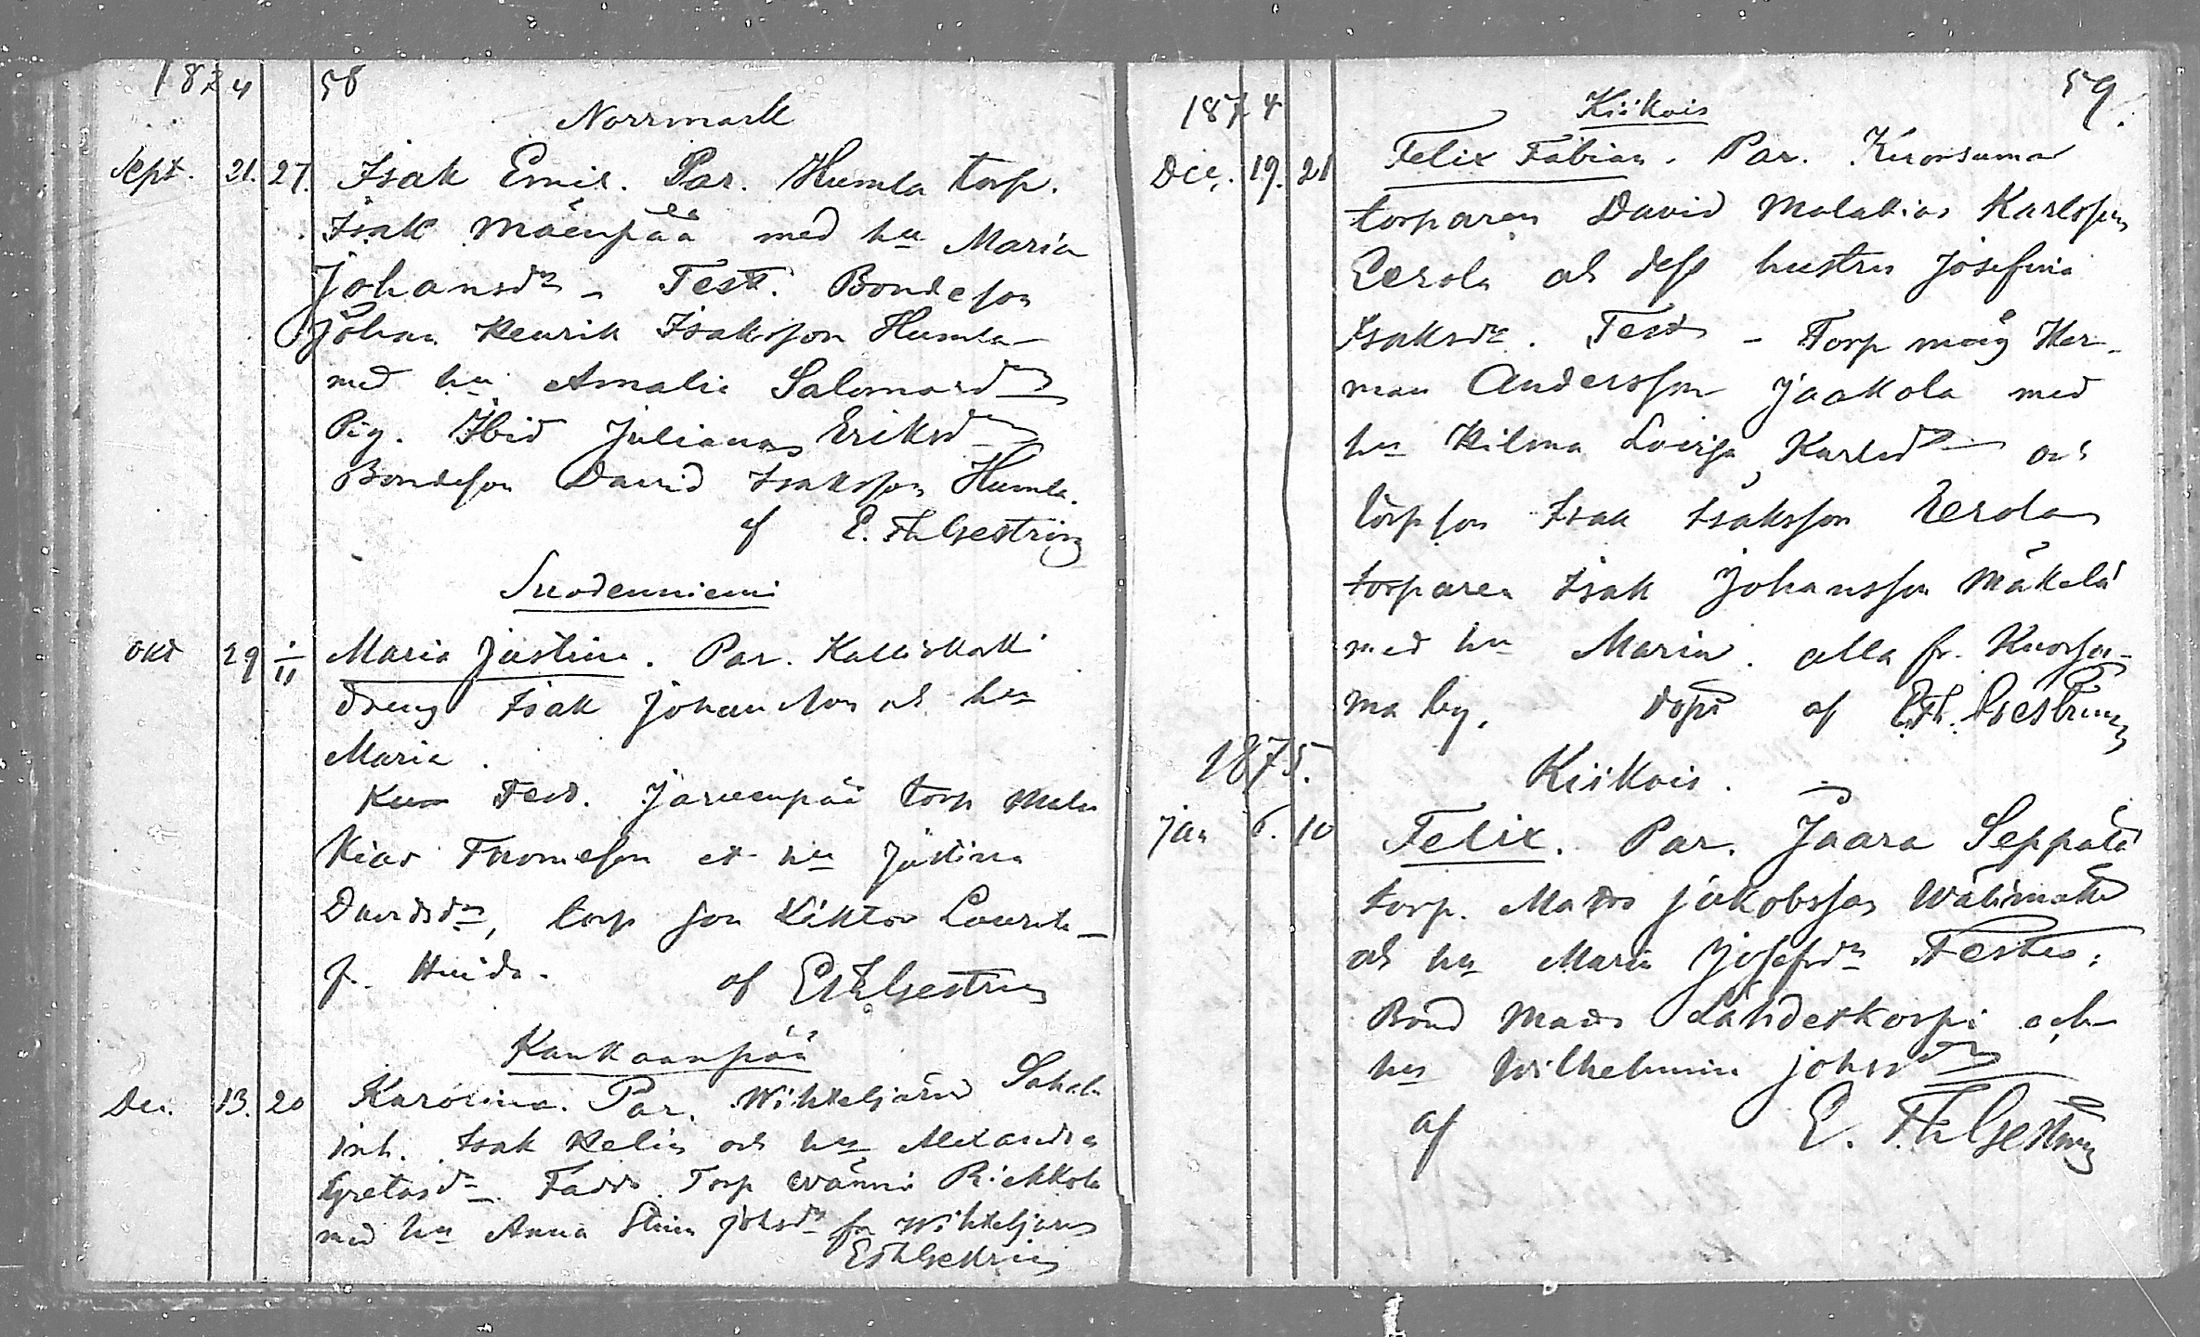 1874 58
Norrmark
Sept. 21. 27. Isak Emil. Par. Humla torp.
Isak Mäenpää med hu Maria
Johansdr – Test. Bondeson
Johan Henrik Isaksson Humla
med hu Amalia Salomonsdr
Pig. Ibid Juliana Eriksdr
Bondeson David Isaksson Humla.
af E. Th. Gestrin
Suodenniemi
Okt 29 1/11 Maria Justina. Par. Kalliskatti
dreng Isak Johansson och hu
Maria.
Test. Järvenpää torp Mala
kias Thomesson et hu Justina
Davidsdr, torp son Viktor
fr. af E Th Gestrin
Kankaanpää
Dec. 13. 20 Karolina. Par. Wihteljärvi
inh. Isak Helin och hu Alexandra
Faddr. Torp
med hu Anna Stina Johsdr fr Wihteljärvi
E Th Gestrin
1874 Kiikois 59.
Dec. 19. 21 Felix Fabian. Par. Kuorsuma
torparen David Malakias Karlsson
Eerola och dess hustru Josefina
Isaksdr. Test – Torp måg Her-
man Andersson Jaakola med
hu Hilma Lovisa Karlsdr och
torpson Isak Isaksson Eerola
torparen Isak Johansson Mäkelä
med hu Maria. alla fr. Kuorsu-
ma by. döpt af E. Th. Gestrin
1875. Kiikois.
Jan 6. 10 Felix. Par. Jaara Seppälä
torp. Matts Jakobsson Wälimäki
och hu Maria Josefsdr Testes:
Bond Matts Lähdeskorpi och
hu Wilhelmina Johsdr
af E. Th Gestrin